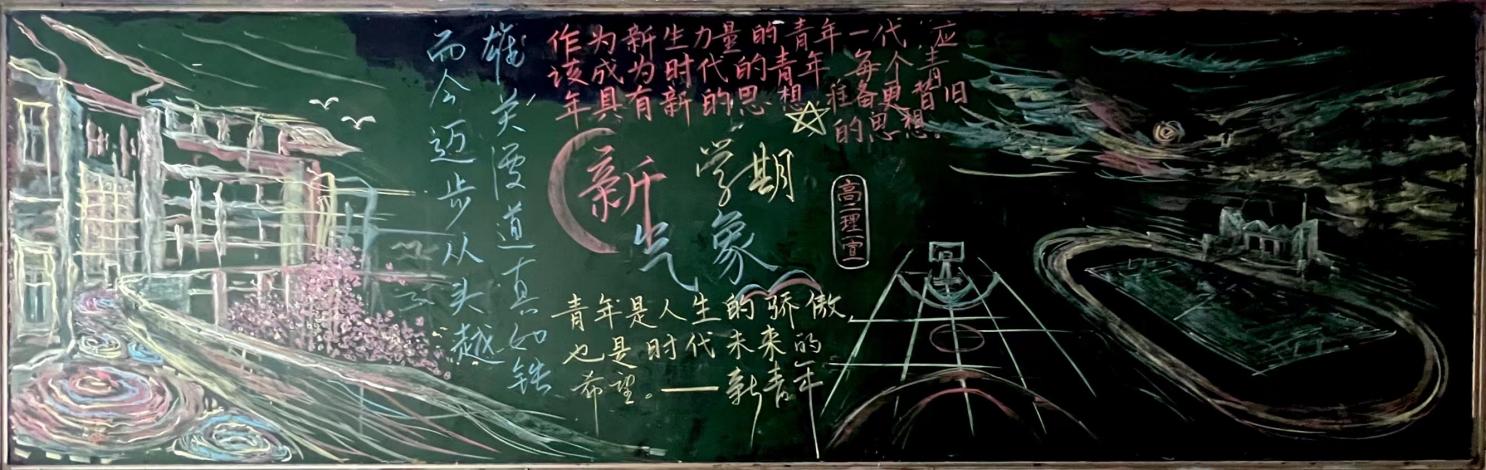 雄关漫道真如铁
而今迈步从头越
作为新生力量的青年一代,应
该成为时代的青年,每个青
年具有新的思想,准备更替旧
的思想。
新学期
气象
高二理宣
青年是人生的骄傲,
也是时代未来的
希望。——新青年